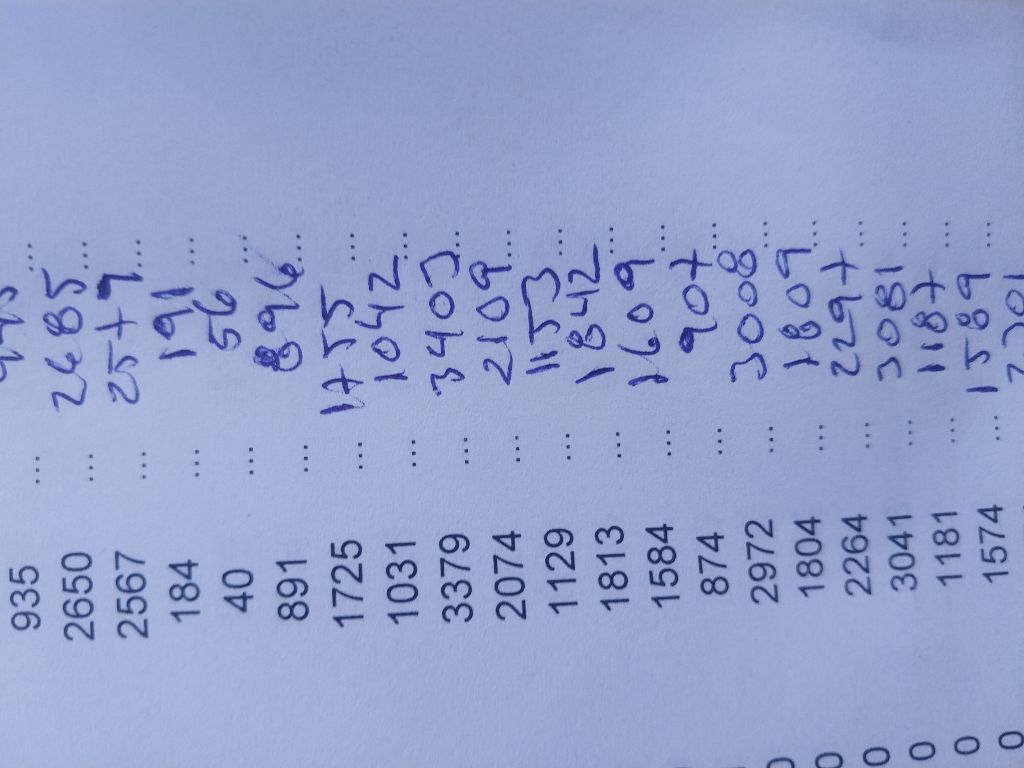 935 ... ...
2650 ... 2685 ...
2567 ... 2579 ...
184 ... 191 ...
40 ... 56 ...
891 ... 896 ...
1725 ... 1755 ...
1031 ... 1042 ...
3379 ... 3403 ...
2074 ... 2109 ...
1129 ... 1153 ...
1813 ... 1842 ...
1584 ... 1609 ...
874 ... 907 ...
0 2972 ... 3008 ...
0 1804 ... 1809 ...
0 2264 ... 2297 ...
0 3041 ... 3081 ...
0 1181 ... 1187 ...
0 1574 ... 1589 ...
2301